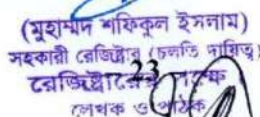 (মুহাম্মদ শফিকুল ইসলাম)
সহকারী রেজিষ্ট্রার (চলতি দায়িত্ব)
রেজিষ্ট্রারের পক্ষে
23
লেখক ও পাঠক